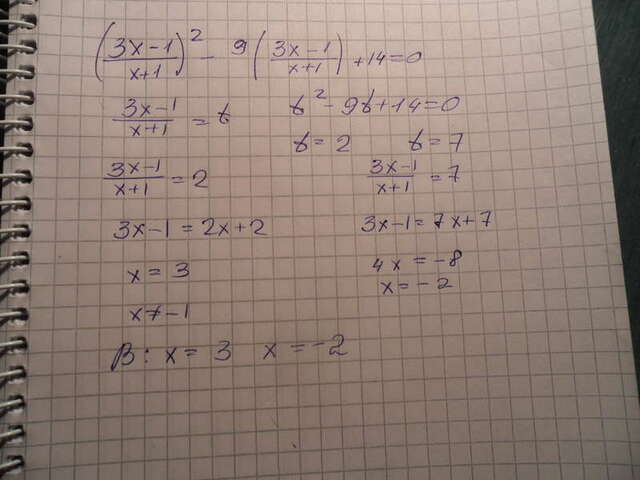 (3x-1/x+1)² - 9(3x-1/x+1) +14=0
3x-1/x+1 = t t² - 9t+14=0
t=2 t=7
3x-1/x+1 = 2 3x-1/x+1 = 7
3x-1 = 2x+2 3x-1= 7x+7
x = 3 4x = -8
x = -2
x≠-1
В: x= 3 x = -2